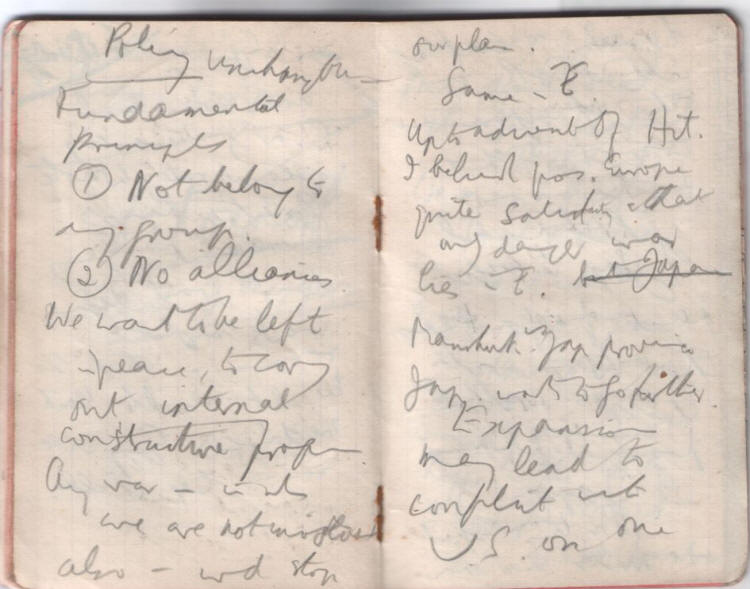 Policy unchangeable
Fundamental
Principles
① Not belong to
any group.
② No alliances.
We want to be left
in peace, to carry
out internal
constructive progr
Any war - in wh
we are not involved
also - wd stop
our plan.
Same - E.
Up to advent of Hit.
I believed pos. Europe
quite satisfactory & that
only danger war
lies - E. but Japan
Manchuk. Jap province
Jap. wants to go farther.
Expansion
may lead to
conflict with
U.S. on one